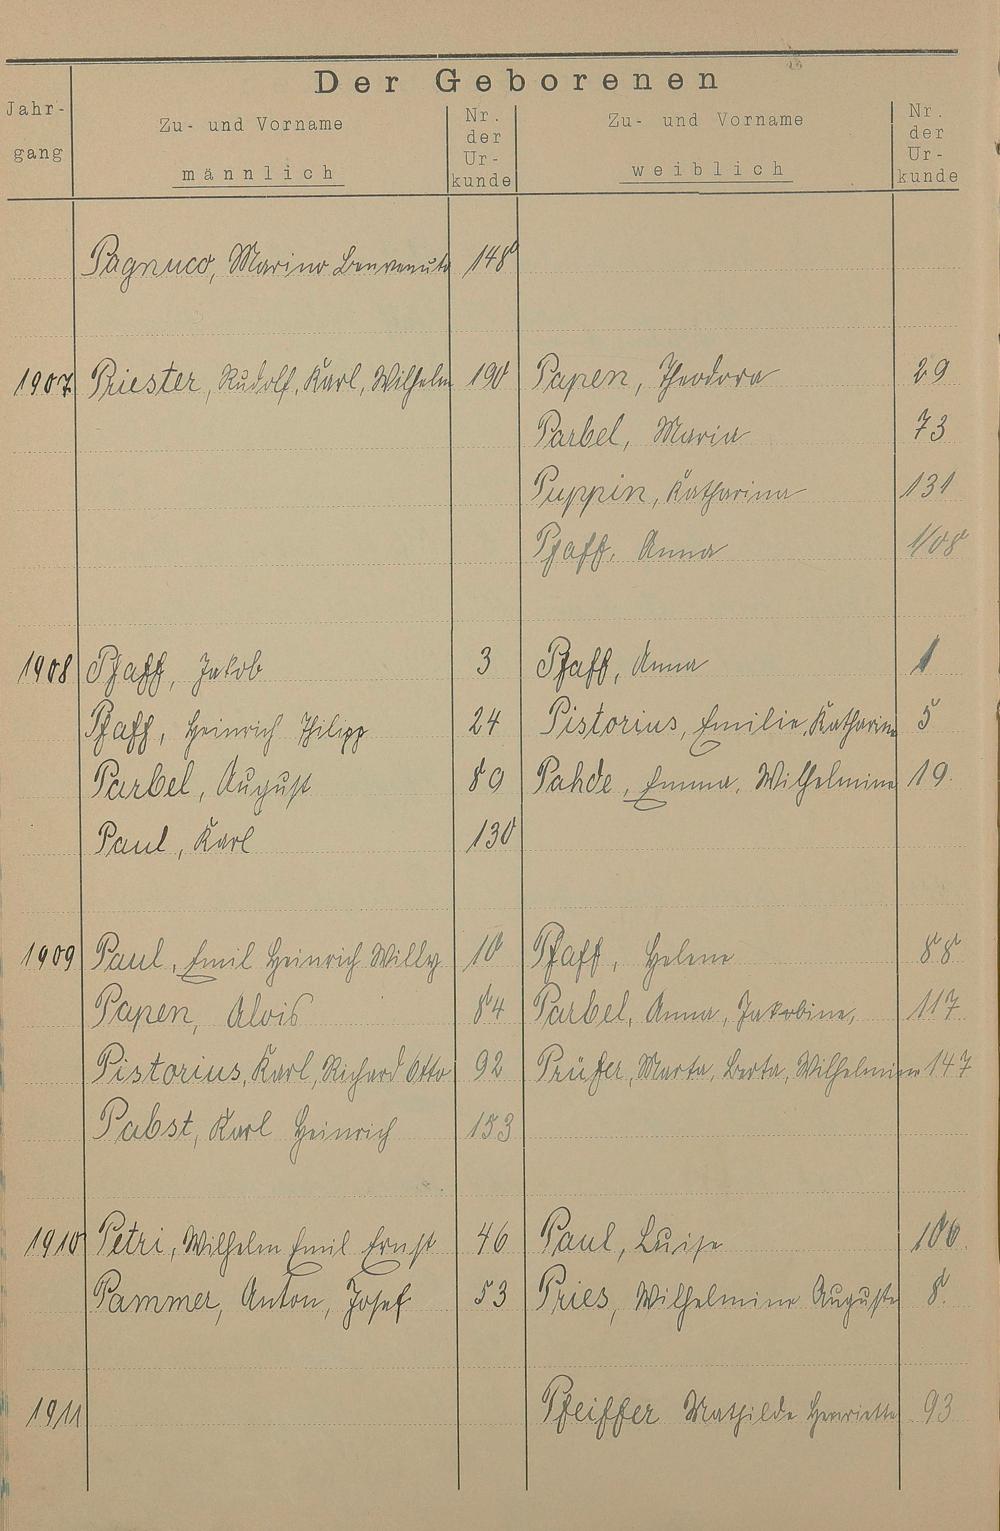 Der Geborenen
Jahr- Zu- und Vorname Nr. Zu- und Vorname Nr.
gang männlich der weiblich der
Ur- Ur-
kunde kunde
Pagnuco, Marino Benvenuto 148
1907 Priester, Rudolf, Karl, Wilhelm 190 Papen, Theodora 29
Parbel, Maria 73
Puppin, Katharina 131
Pfaff, Anna 1/08
1908 Pfaff, Jakob 3 Pfaff, Anna 1
Pfaff, Heinrich Philipp 24 Pistorius, Emilie, Katharina 5
Parbel, August 89 Pahde, Emma, Wilhelmine 19.
Paul, Karl 130
1909 Paul, Emil Heinrich Willy 10 Pfaff, Helene 88
Papen, Alois 84 Parbel, Anna, Jakobine, 117
Pistorius, Karl, Richard Otto 92 Prüfer, Marta, Berta, Wilhelmine 147
Pabst, Karl Heinrich 153
1910 Petri, Wilhelm Emil Ernst 46 Paul, Luise 106.
Pammer, Anton, Josef 53 Pries, Wilhelmine Auguste 8.
1911 Pfeiffer Mathilde Henriette 93